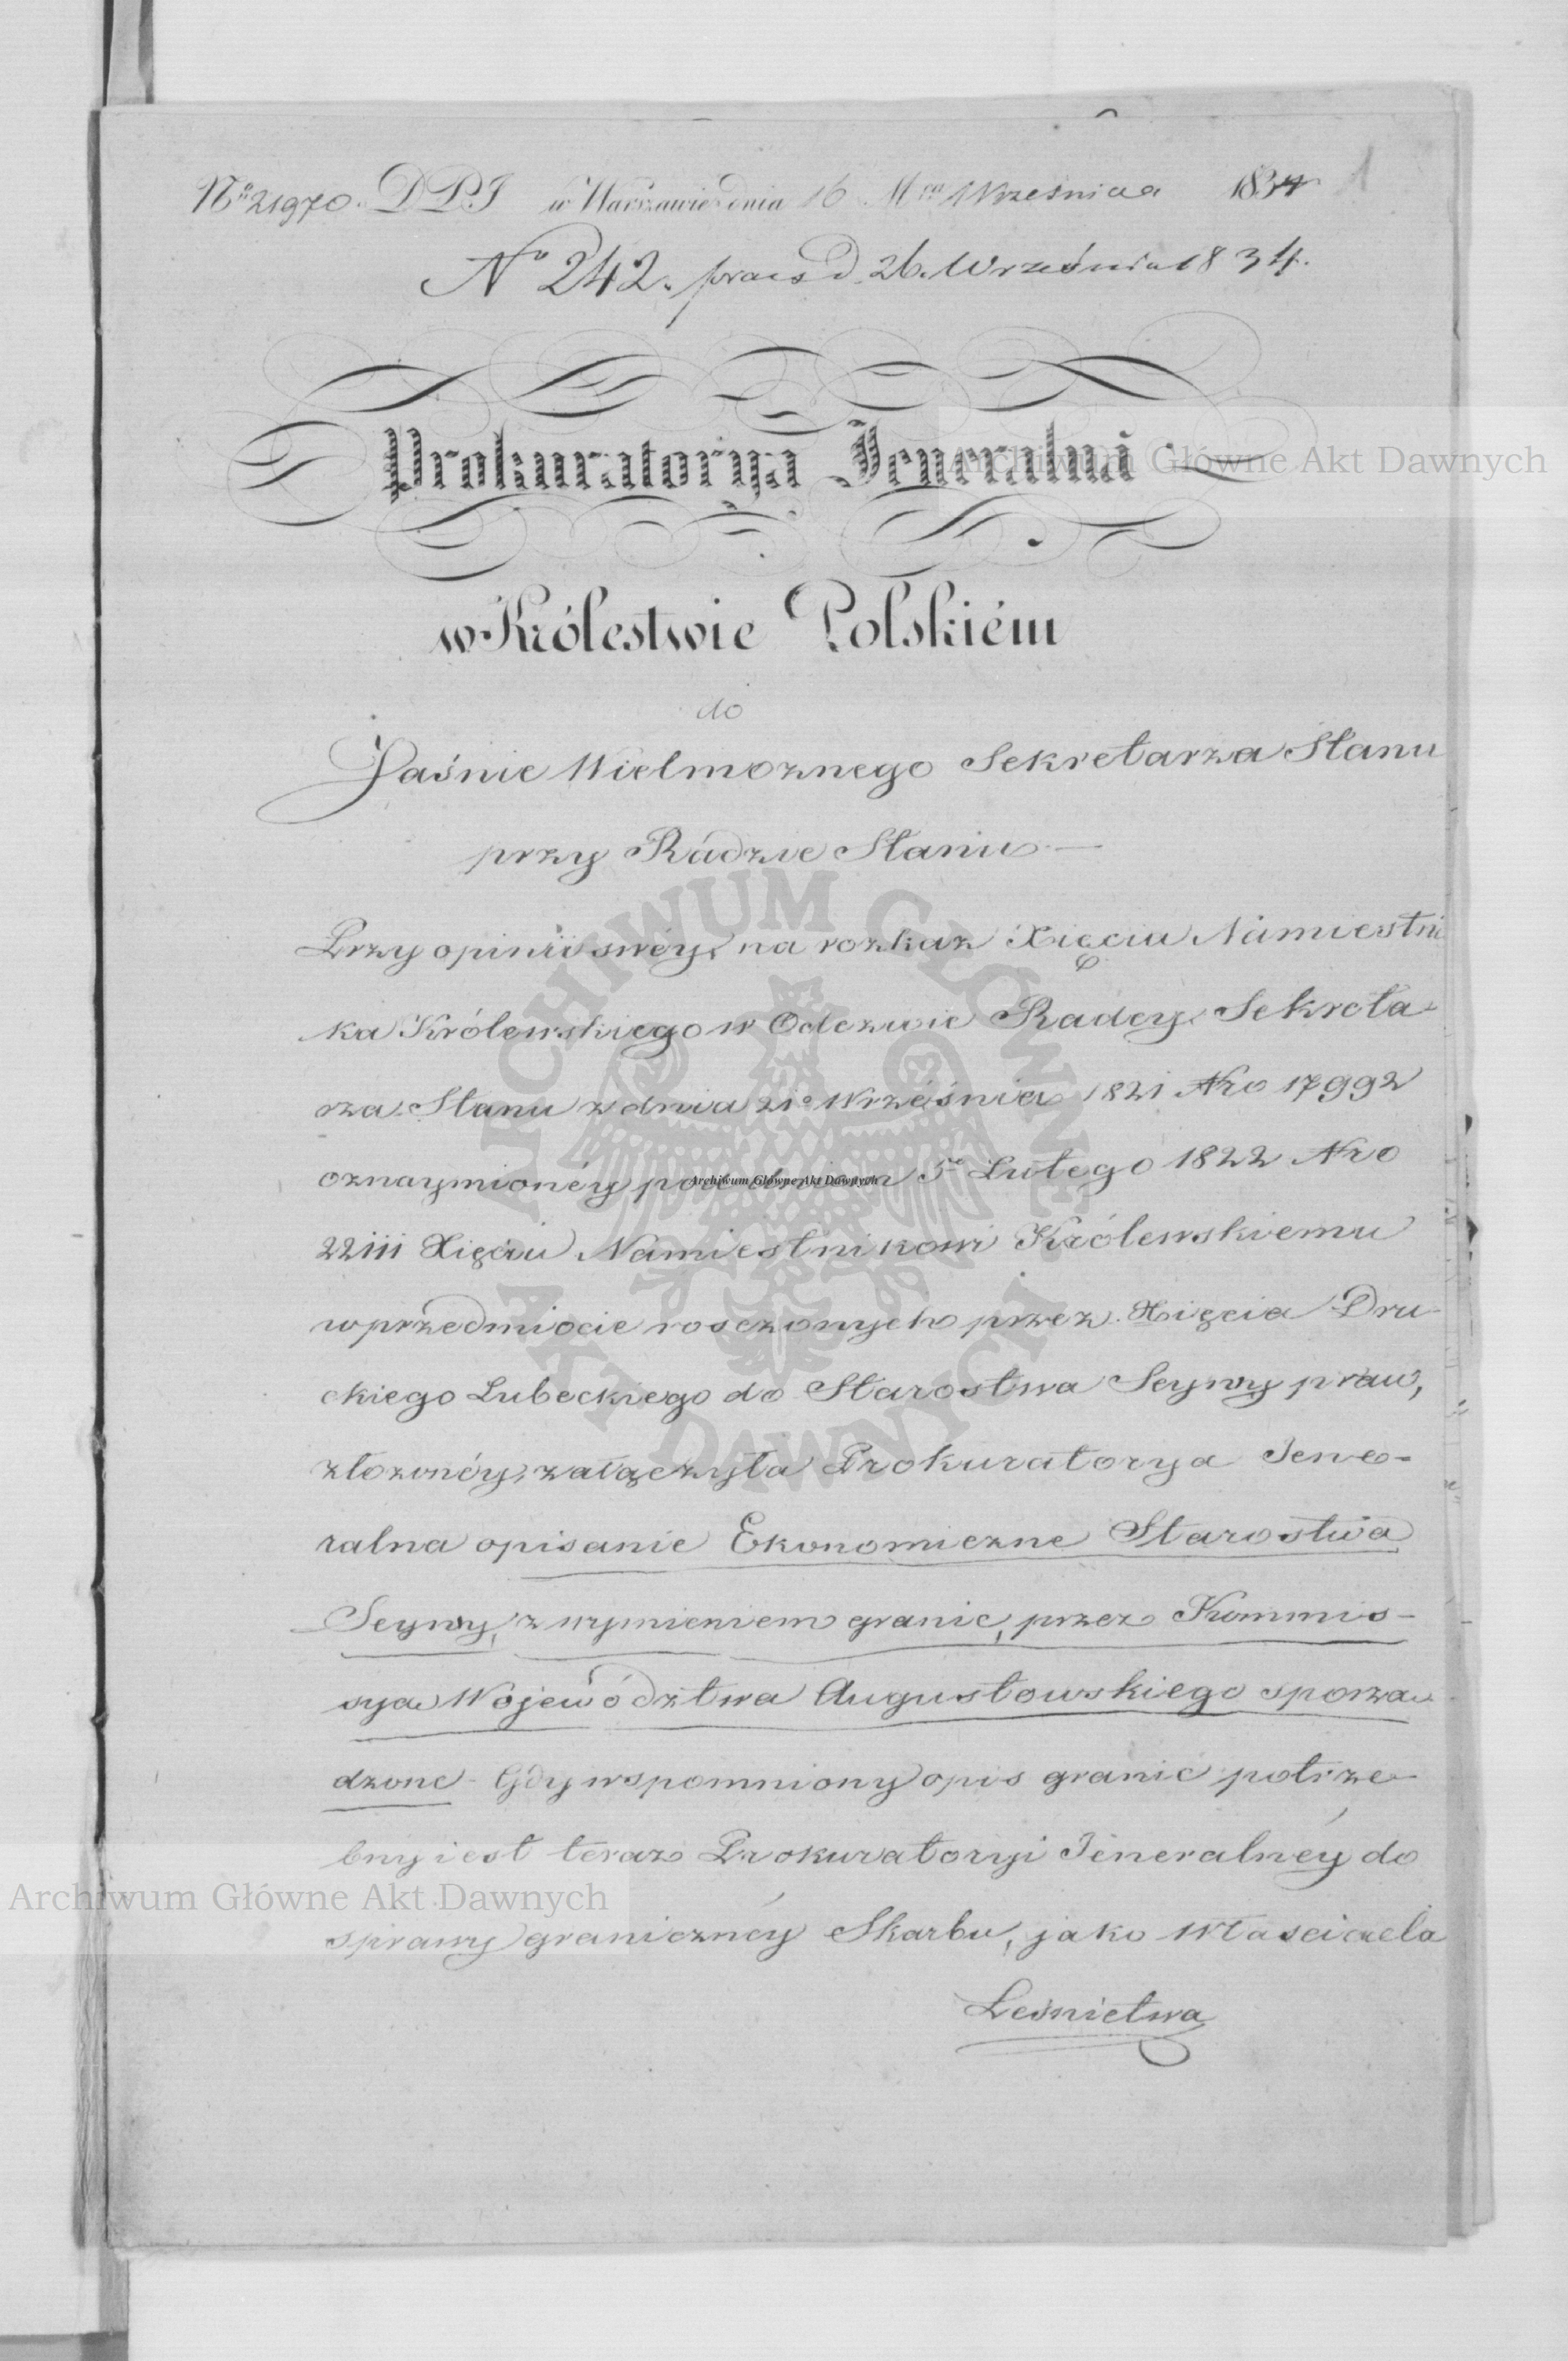 No 21970. DPJ w Warszawie dnia 16 Mca Września 1834 1
No 242. praes d. 26. Września 1834.
Prokuratorya Jeneralna
w Królestwie Polskiém
do
Jaśnie Wielmoznego Sekretarza Stanu
przy Radzie Stanu —
Przy opinii swéy, na rozkaz Xięcia Namiestni
ka Królewskiego w Odezwie Radcy Sekreta-
rza Stanu z dnia 21o Września 1821 Nro 17992
oznaymionéy pod dniem 5o Lutego 1822 Nro
22111 Xięciu Namiestnikowi Królewskiemu
w przedmiocie rosczonych przez Xięcia Dru-
ckiego Lubeckiego do Starostwa Seyny praw,
złozonéy, załączyła Prokuratorya Jene-
ralna opisanie Ekonomiczne Starostwa
Seyny, z wymieniem granic, przez Kommis-
syą Województwa Augustowskiego sporzą-
dzone - Gdy wspomniony opis granic potrze-
bny iest teraz Prokuratoryi Jeneralnéy do
sprawy granicznéy Skarbu, jako Własciciela
Leśnictwa
Archiwum Główne Akt Dawnych
Archiwum Główne Akt Dawnych
ARCHIWUM GŁÓWNE AKT DAWNYCH
Archiwum Główne Akt Dawnych